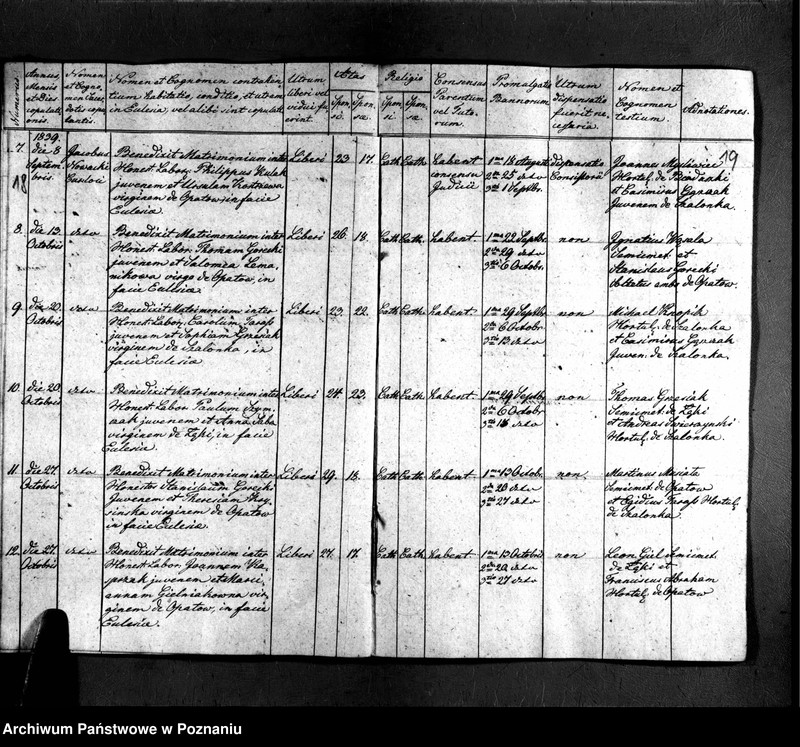 Numerus.
Annus, Mensis et Dies copulationis.
Nomen et Cognomen Sacerdotis copulantis.
Nomen et Cognomen contrahentium habitatio, conditio, et utrum in Eclesia, vel alibi sint copulati
Utrum liberi vel vidui fuerint.
Aetas
Sponsi. Sponsae.
Religio
Sponsi Sponsae.
Consensus Parentum vel Tutorum.
Promulgatio Bannorum.
Utrum dispensatio fuerit necesaria.
Nomen et Cognomen testium.
Adnotationes.
18
19
1839.
7. die 8 Septembris Jacobus Nowacki
Benedixit Matrimonium inter
Honest. Labor. Philippus Kulak
juvenem et Ursulam
virginem de Opatow in facie
Eclesia.
Liberi 23 17. Cath Cath. habent consensu Judicii
1ma 18 August
2da 25 detto
3tia 1 Septbr.
dispensatio Consistorii
Joannes
Hortul. de
et Casimirus
Juvenem de Szalonka.
8. die 13. Octobris detto
Benedixit Matrimonium inter
Honest. Labor. Thomam Gorecki
juvenem et Salomea Lema,
nikowa virgo de Opatow, in
facie Eclesia.
Liberi 26. 18. Cath Cath. habent
1ma 22 Septbr.
2da 29 detto
3tia 6 Octobr.
non
Ignatius
Semiemet. et
Stanislaus Gorecki
ambo de Opatow.
9. die 20. Octobris detto
Benedixit Matrimonium inter
Honest. Labor. Carolum
juvenem et Sophiam Gzesiak
virginem de Szalonka, in
facie Eclesia
Liberi 23. 22. Cath Cath. habent
1ma 29 Septbr.
2da 6 Octobr
3tia 13 detto
non
Michael
Hortul. de Szalonka
et Casimirus
Juven. de Szalonka.
10. die 20 Octobris detto
Benedixit Matrimonium inter
Honest. Labor. Paulum Szym,
czak juvenem et Anna Saba
virginem de Zęki, in facie
Eclesia.
Liberi 24. 23. Cath Cath. habent
1ma 29 Septbr
2da 6 Octobr
3tia 13 detto
non
Thomas Gzesiak
Semiemet. de Zęki
et Andreas Swierczynski
Hortul. de Szalonka.
11. die 27. Octobris detto
Benedixit Matrimonium inter
Honestos Stanislaum Gorecki
Juvenem et Theresiam
virginem de Opatow
in facie Eclesia.
Liberi 29. 18. Cath Cath. habent
1ma 13 Octobr.
2da 20 detto
3tia 27 detto
non
Martinus
Semiemet de Opatow
et Egidius Hortul.
de Szalonka.
12. die 27. Octobris detto
Benedixit Matrimonium inter
Honest. Labor. Joannem Ka,
juvenem et Mari,
annam Gielniakowna vir,
ginem de Opatow, in facie
Eclesia.
Liberi 27. 17. Cath Cath. habent
1ma 13 Octobris
2da 20 detto
3tia 27 detto
non
Leon Giel Semiemet
de Zęki et
Franciscus Abraham
Hortul. de Opatow
Archiwum Państwowe w Poznaniu